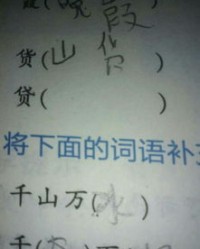 霞
货(山货)
贷( )
将下面的词语补
千山万(水)
千(